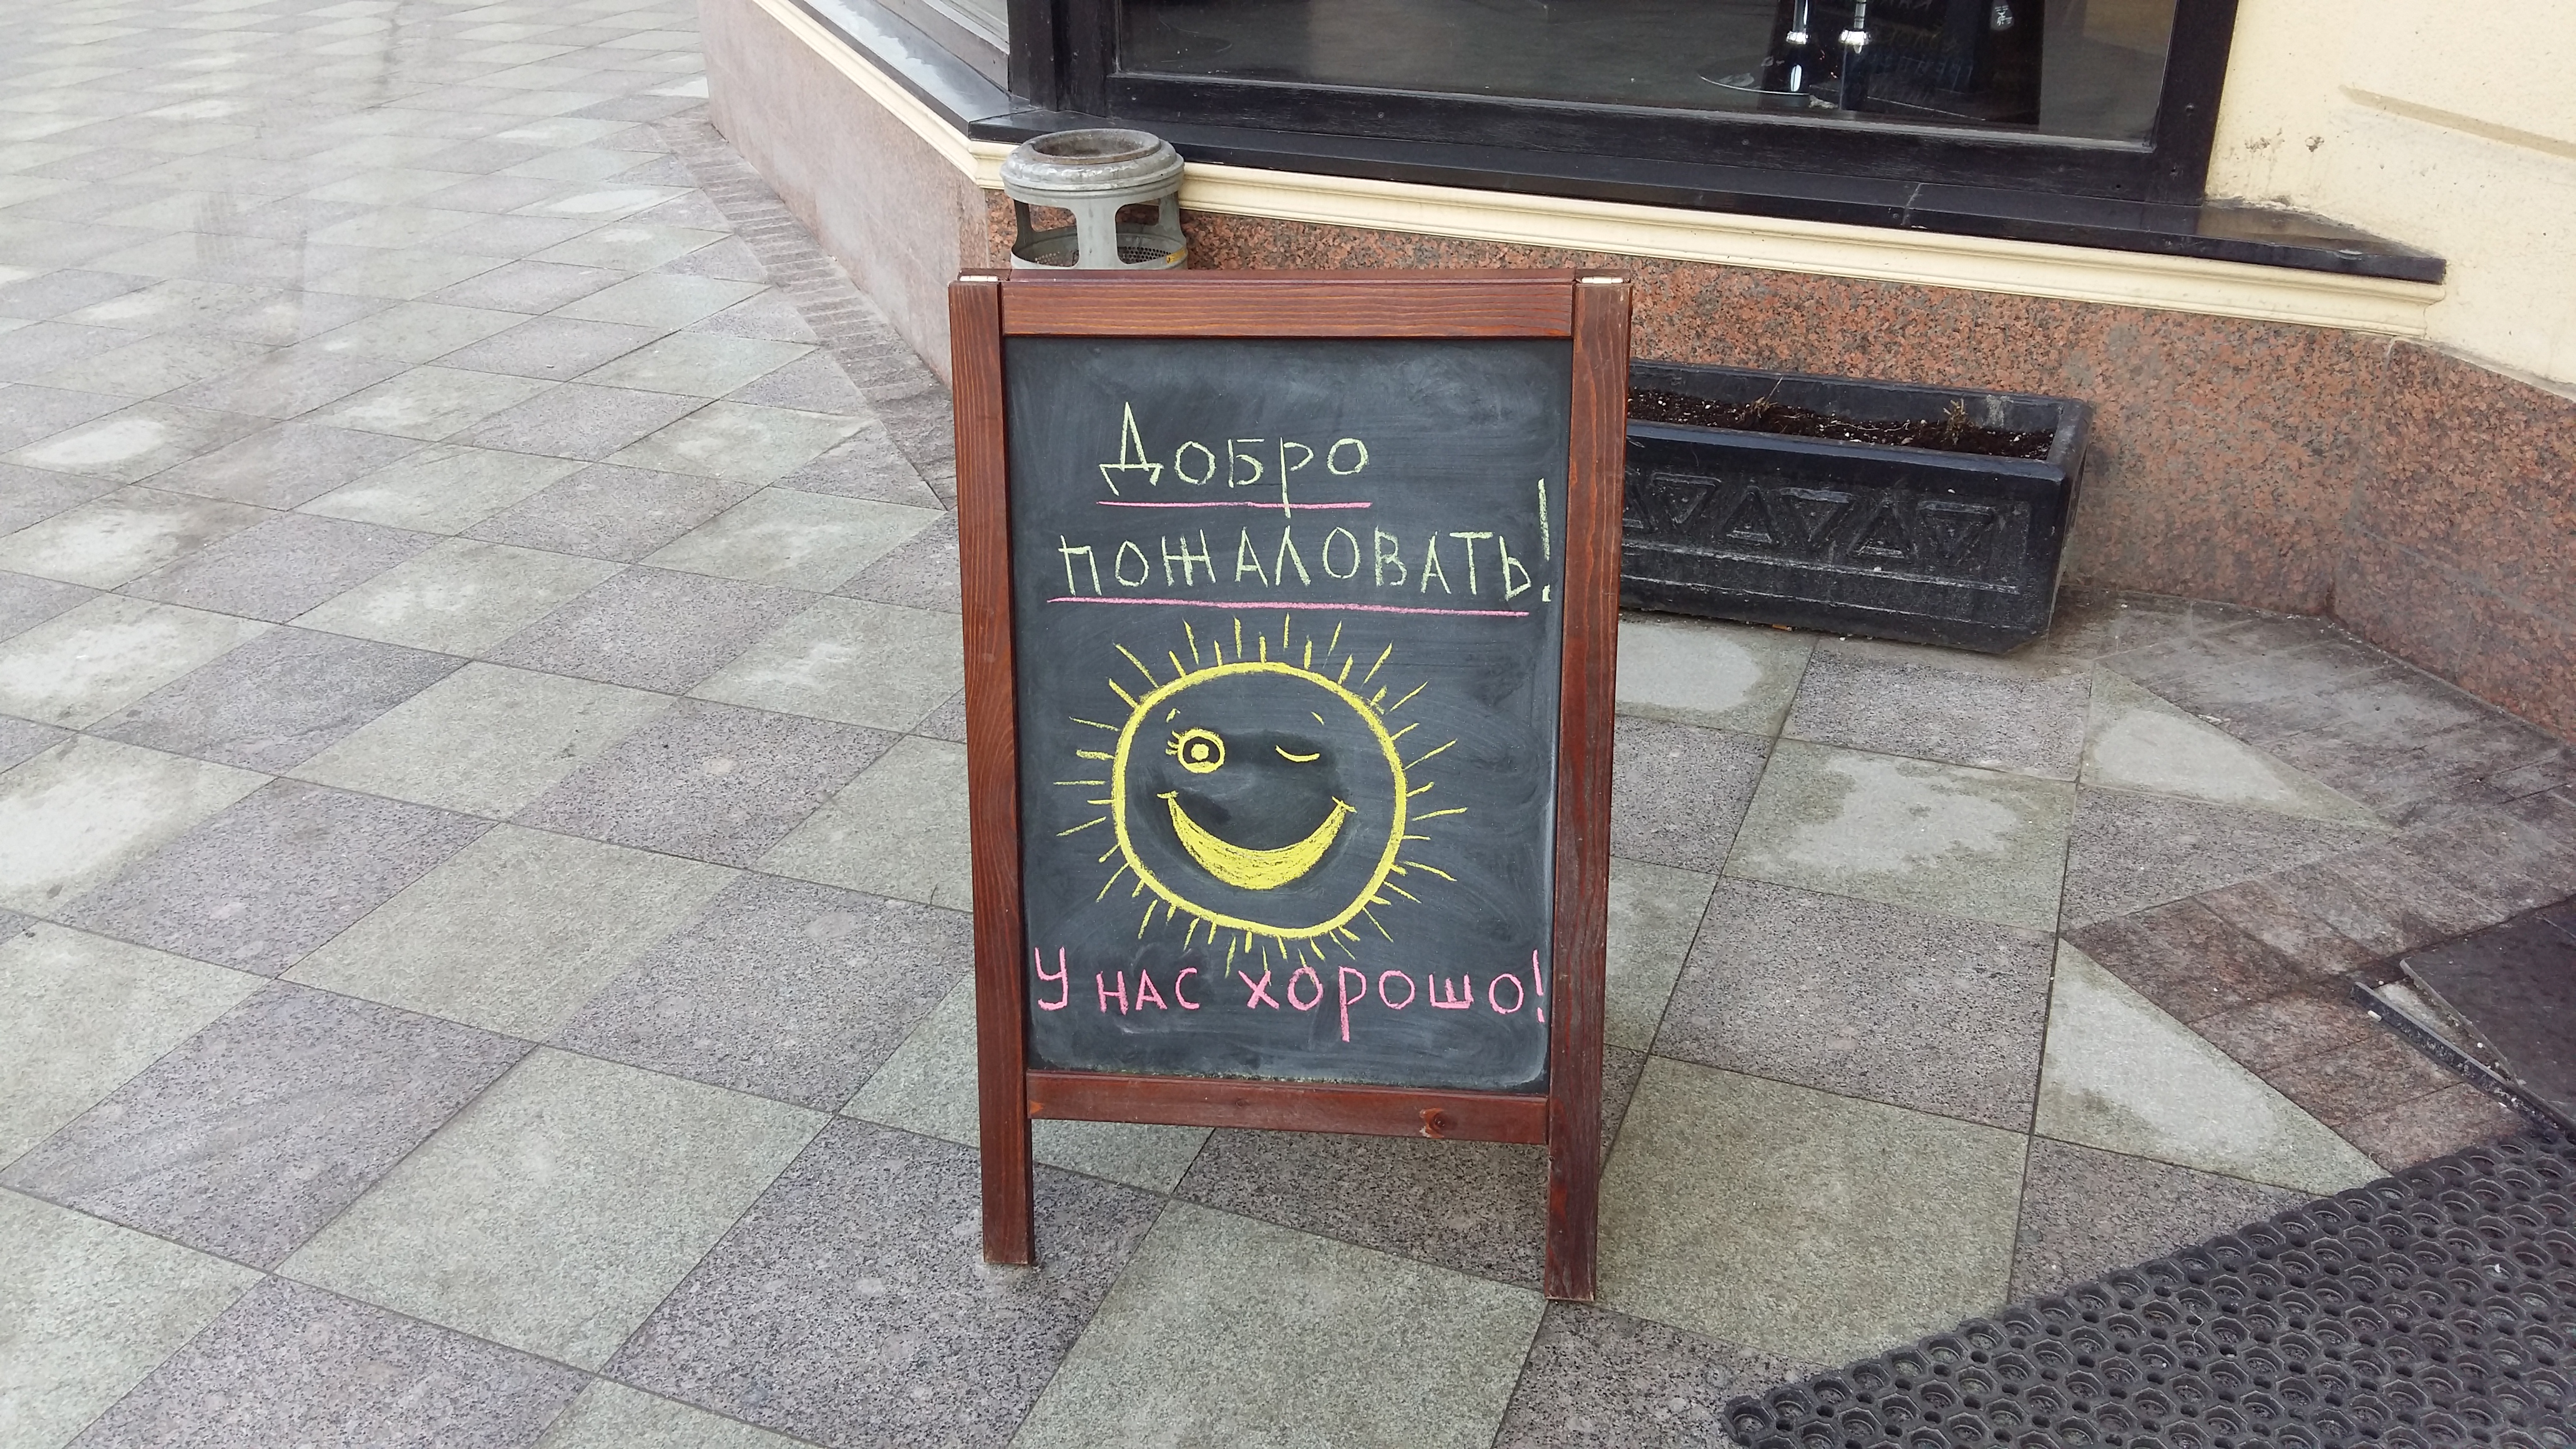 Добро
пожаловать!
У нас хорошо!